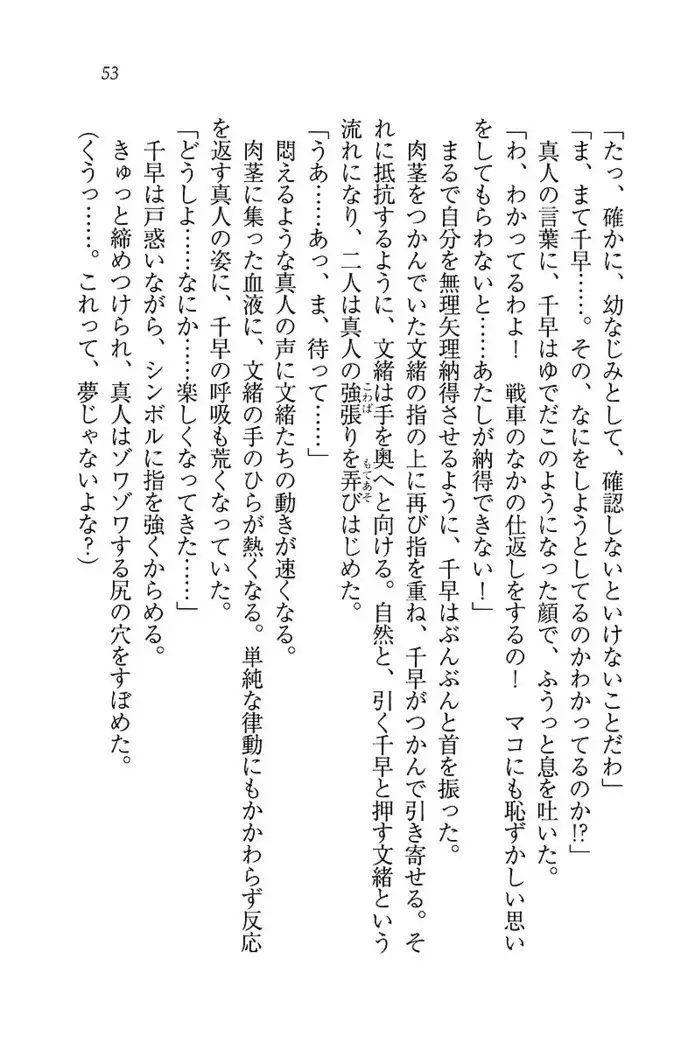 53
「たっ、確かに、幼なじみとして、確認しないといけないことだわ」
「ま、まて千早……。その、なにをしようとしてるのかわかってるのか!?」
真人の言葉に、千早はゆでだこのようになった顔で、ふうっと息を吐いた。
「わ、わかってるわよ！　戦車のなかの仕返しをするの！　マコにも恥ずかしい思い
をしてもらわないと……あたしが納得できない！」
まるで自分を無理矢理納得させるように、千早はぶんぶんと首を振った。
肉茎をつかんでいた文緒の指の上に再び指を重ね、千早がつかんで引き寄せる。そ
れに抵抗するように、文緒は手を奥へと向ける。自然と、引く千早と押す文緒という
流れになり、二人は真人の強張りを弄びはじめた。
「うあ……あっ、ま、待って……」
悶えるような真人の声に文緒たちの動きが速くなる。
肉茎に集った血液に、文緒の手のひらが熱くなる。単純な律動にもかかわらず反応
を返す真人の姿に、千早の呼吸も荒くなっていた。
「どうしよ……なにか……楽しくなってきた……」
千早は戸惑いながら、シンボルに指を強くからめる。
きゅっと締めつけられ、真人はゾワゾワする尻の穴をすぼめた。
（くうっ……。これって、夢じゃないよな？）